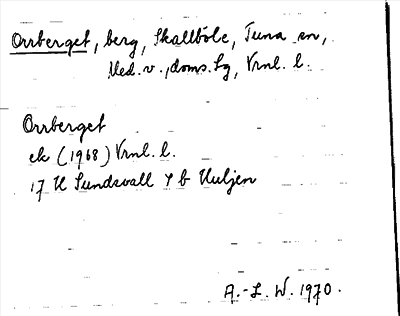 Orrberget, berg, Skallböle, Tuna sn,
Med. v., doms. sg, Vrnl. l.
Orrberget
ek (1968) Vrnl. l.
17 H Sundsvall 7 b Huljen
A.-L. W. 1970.